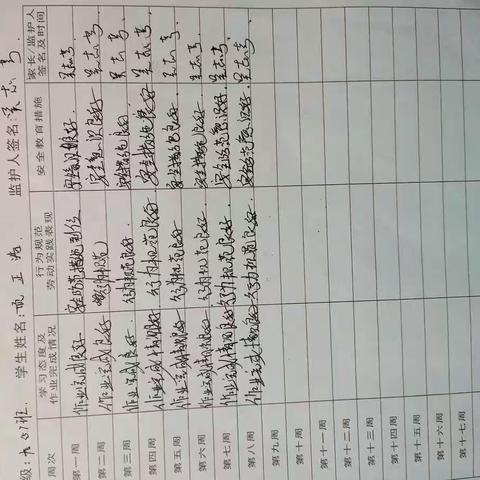 级: 九.01班. 学生姓名: 正 监护人签名: 吴志高.
周次 学习态度及作业完成情况 行为规范劳动实践表现 安全教育措施 家长/监护人签名及时间
第一周 作业完成良好 安全防范措施到位 吴志高
第二周 作业完成良好 安全意识良好 吴志高
第三周 作业完成良好. 行为规范良好. 安全措施良好. 吴志高
第四周 作业完成情况良好 行为规范良好 安全措施良好 吴志高
第五周 作业完成情况良好 行为规范良好. 安全措施良好. 吴志高
第六周 作业完成情况良好 行为规范良好 安全措施良好. 吴志高
第七周 作业完成情况良好 行为规范良好. 安全防范意识好. 吴志高
第八周 作业完成情况良好 行为规范良好. 安全防范意识好. 吴志高
第九周
第十周
第十一周
第十二周
第十三周
第十四周
第十五周
第十六周
第十七周